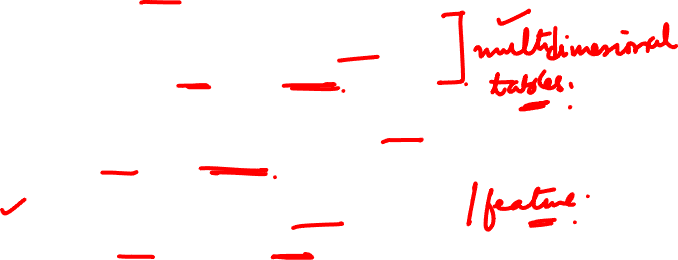 multidimensional
tables.
/feature.